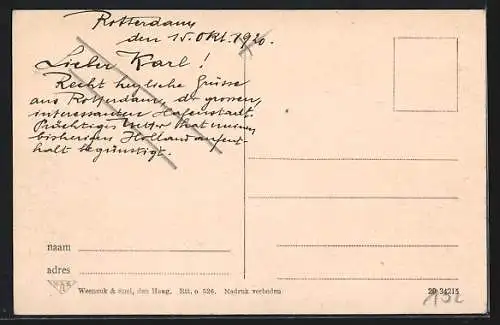 Rotterdam,
den 15. Okt. 1920.
Lieber Karl!
Recht herzliche Grüsse
aus Rotterdam, der grossen,
interessanten Hafenstadt.
Prächtiges Wetter hat meinen
bisherigen Hollandaufent-
halt begünstigt.
naam
adres
Weenenk & Snel, den Haag. Rtt. o 526. Nadruk verboden
20 34215